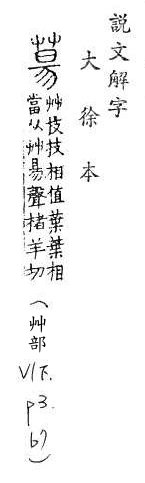 説文解字
大徐本
艸枝枝相值葉葉相
當从艸昜聲楮羊切
(艸部
VI下.
p3.
b7)